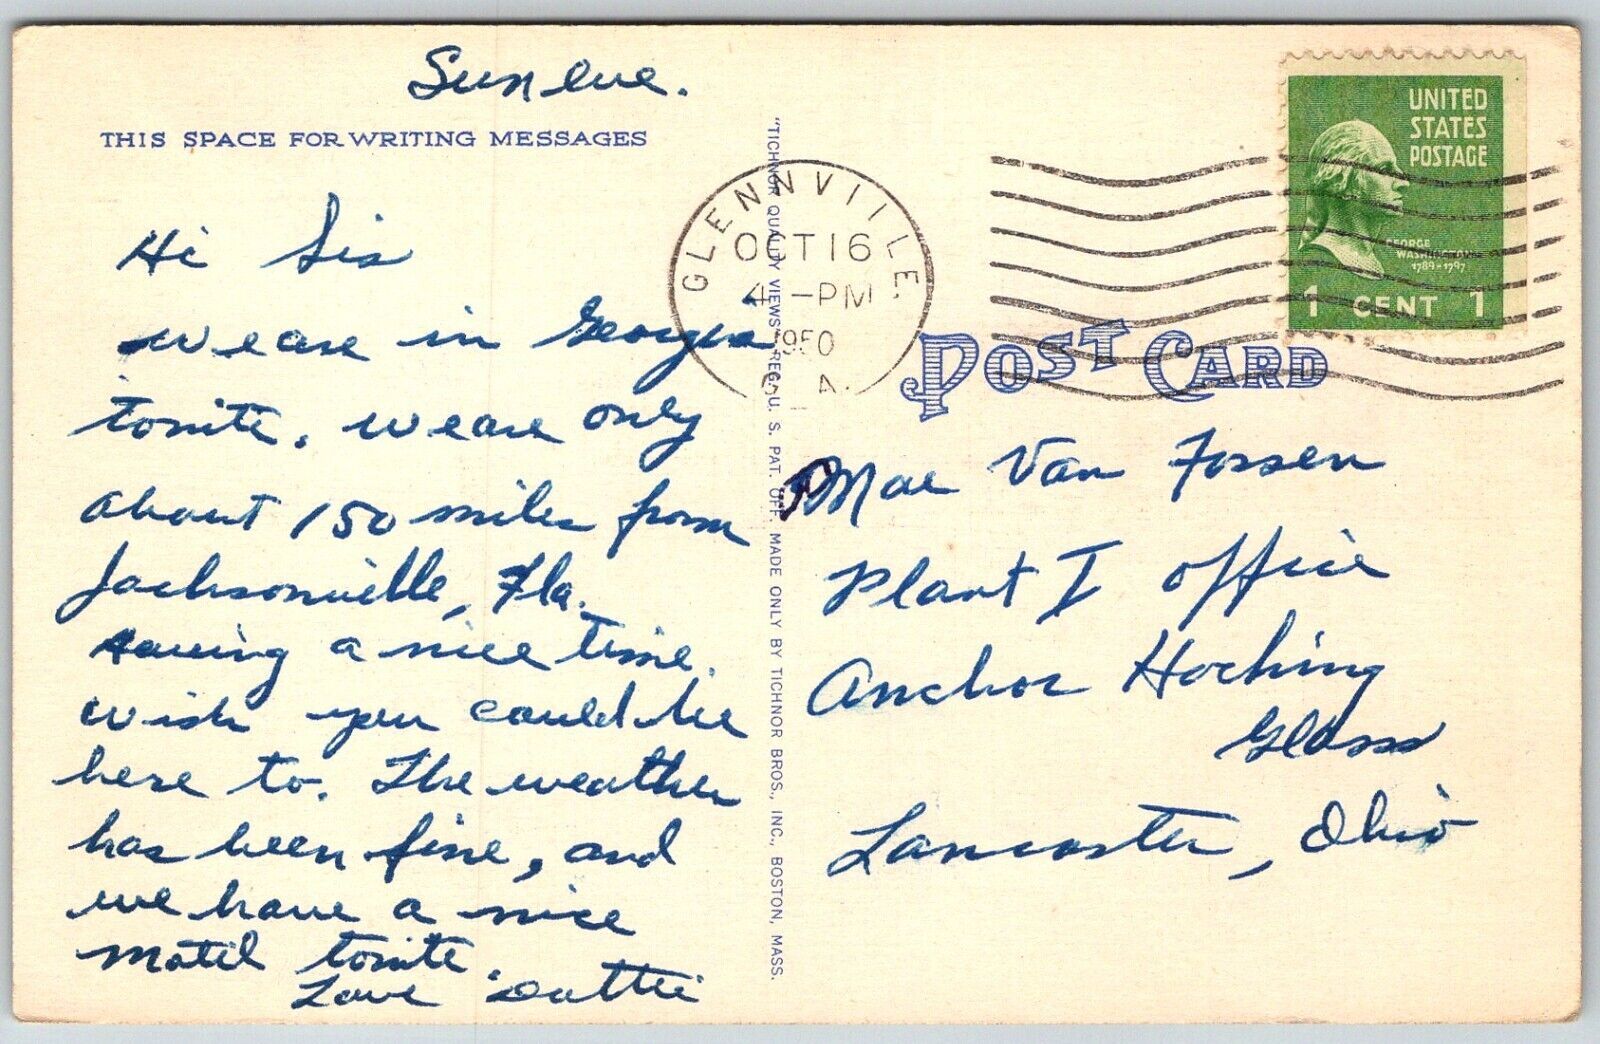 Sun eve.
THIS SPACE FOR WRITING MESSAGES
Hi Sis
we are in Georgia
tonite. we are only
about 150 miles from
Jacksonville, Fla.
Having a nice time.
wish you could be
here to. The weather
has been fine, and
we have a nice
motel tonite.
Love Dottie
"TICHNOR QUALITY VIEWS" REG. U. S. PAT. OFF. MADE ONLY BY TICHNOR BROS., INC., BOSTON, MASS.
GLENNVILLE.
OCT 16
4 -PM
1950
UNITED
STATES
POSTAGE
GEORGE
WASHINGTON
1789-1797
1 CENT 1
POST CARD
Mae Van Fossen
Plant I office
Anchor Hocking
Glass
Lancaster, Ohio